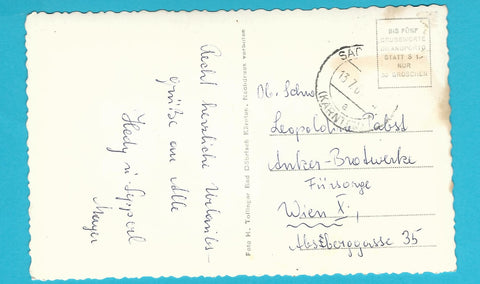 Recht herzliche Urlaubs-
grüße an Alle
Hedy u Sepperl
Mayer
Foto H. Tollinger Bad Döllach Kärnten, Nachdruck verboten
BIS FÜNF
GRUSSWORTE
PORTO
STATT S 1.-
NUR
30 GROSCHEN
SAC
13.7.6
(KÄRNTEN)
Ob. Schw.
Leopoldine Pabst
Anker-Brotwerke
Fürsorge
Wien X.,
Absberggasse 35